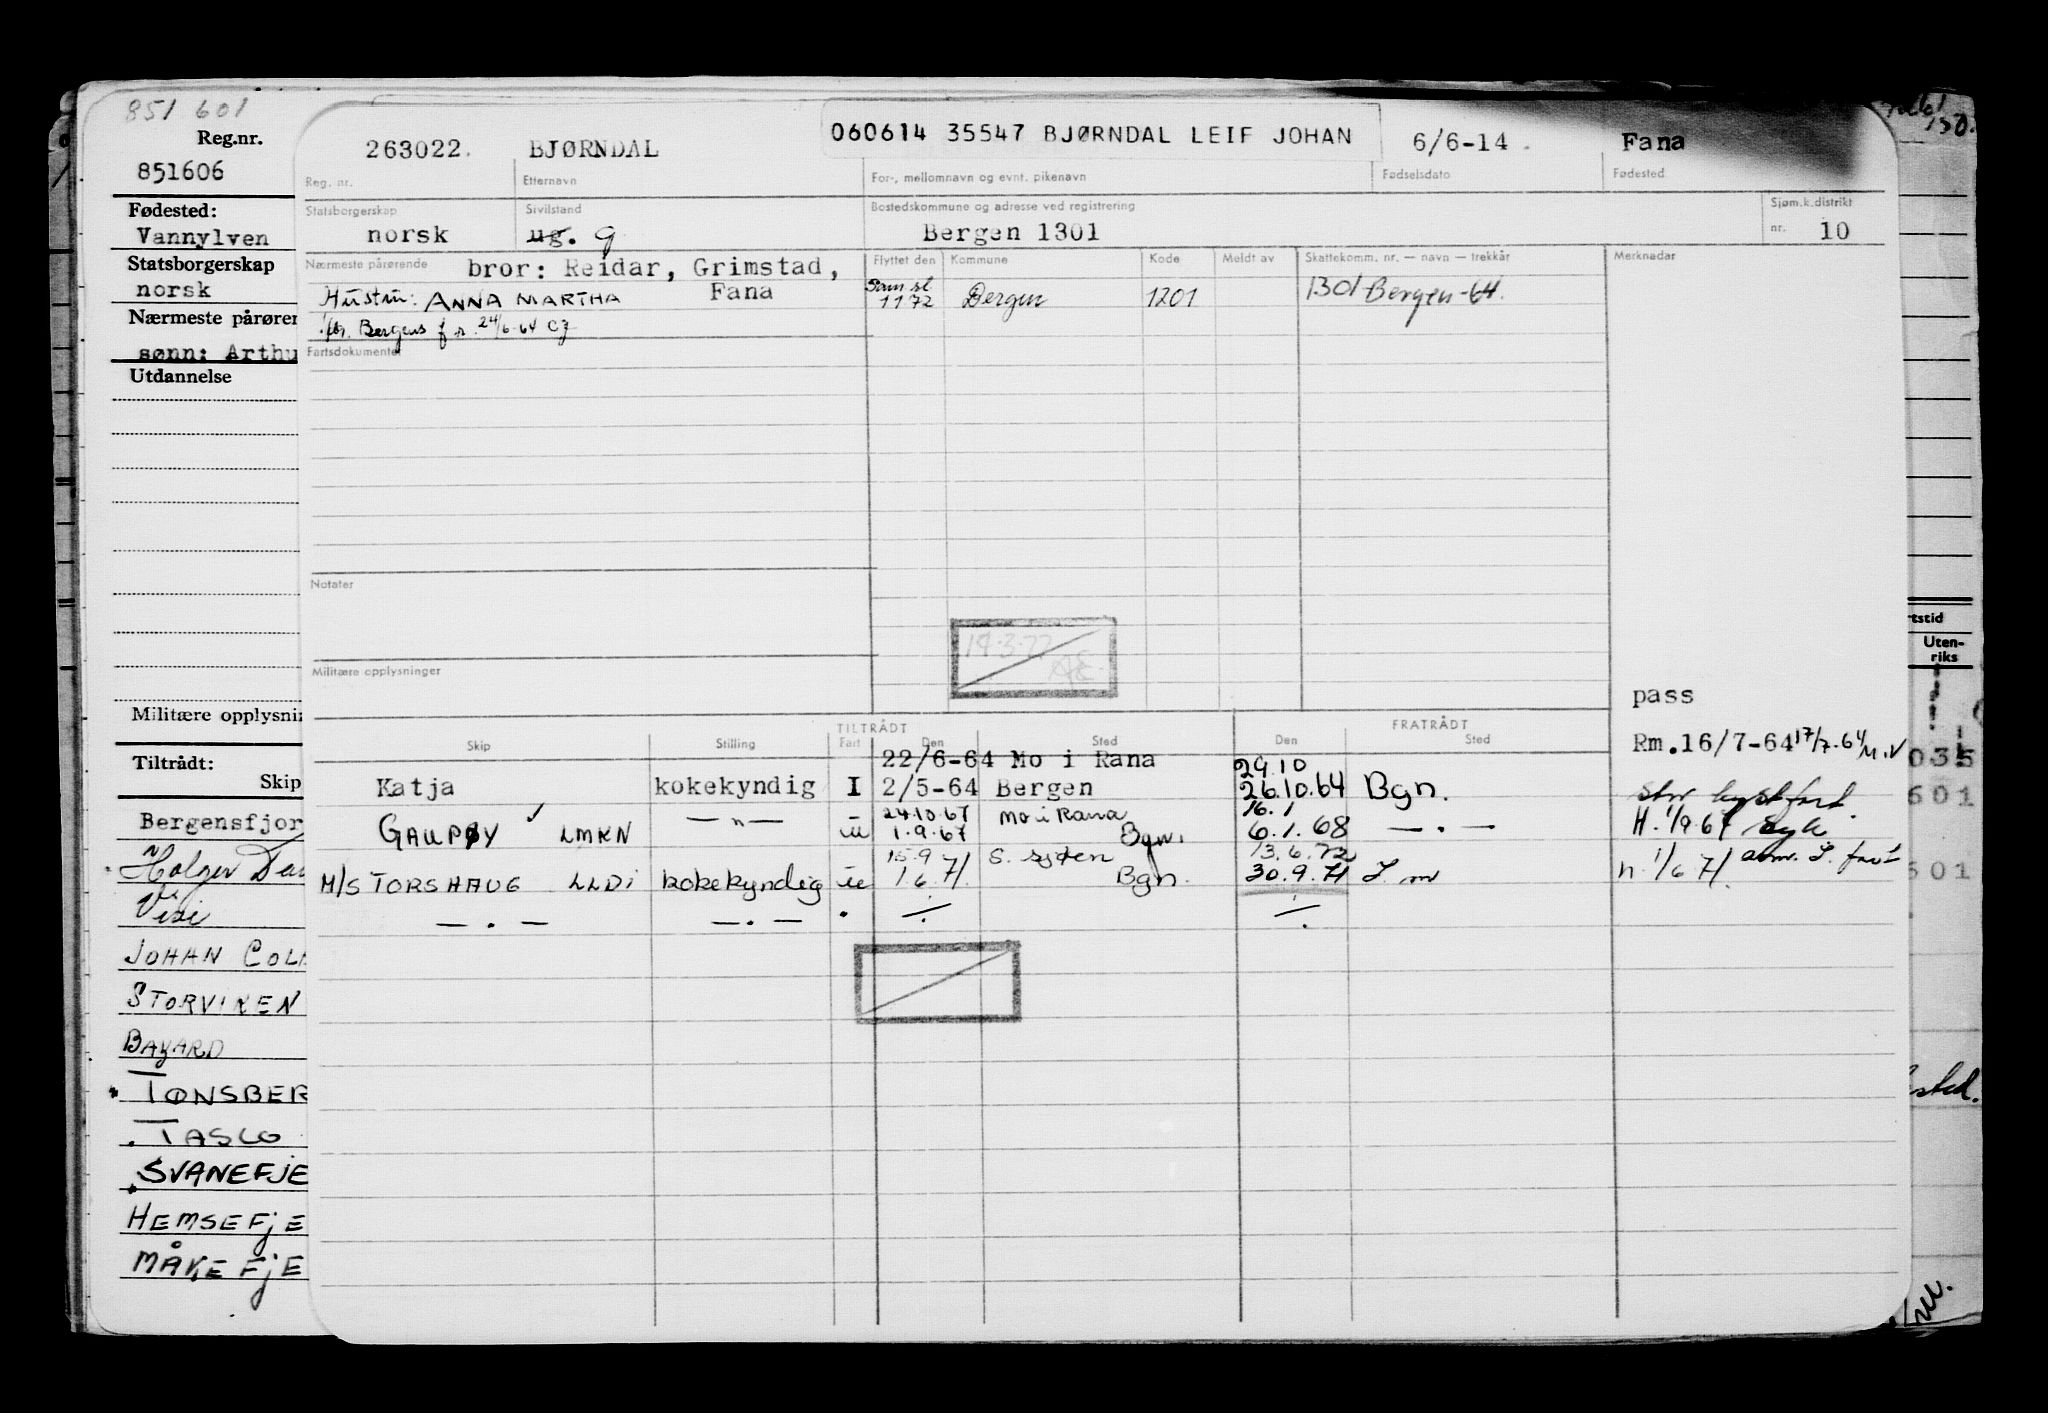 851 601
Reg.nr.
851606
Fødested:
Vannylven
Statsborgerskap
norsk
Nærmeste pårøren
sønn: Arthu
Utdannelse
Militære opplysnin
Tiltrådt:
Skip
Bergensfjor
Holger Dan
Visi
JOHAN COL
STORVIKEN
BAYARD
TØNSBER
TASCO
SVANEFJE
HEMSEFJE
MÅKEFJE
263022. BJØRNDAL 060614 35547 BJØRNDAL LEIF JOHAN 6/6-14. Fana
Reg. nr. Etternavn For-, mellomnavn og evnt. pikenavn Fødselsdato Fødested
Statsborgerskap Sivilstand Bostedskommune og adresse ved registrering Sjøm.k.distrikt
norsk ug. g Bergen 1301 nr. 10
Nærmeste pårørende bror: Reidar, Grimstad, Fana
Hustru: ANNA MARTHA
Bergens f.r. 24/6-64
Flyttet den Kommune Kode Meldt av Skattekomm. nr. — navn — trekkår Merknader
1172 Bergen 1201 1301 Bergen-64.
Fartsdokumenter
Notater
14.3.77
Militære opplysninger
pass
TILTRÅDT FRATRÅDT
Skip Stilling Fart Den Sted Den Sted
Rm.16/7-64 17/7-64
22/6-64 Mo i Rana 29.10
Katja kokekyndig I 2/5-64 Bergen 26.10.64 Bgn.
24.10.67 Mo i Rana 16.1
GAUPØY LMKN — " — 1.9.67 Bgn. 6.1.68 — . —
H. 1/9.67
15.9 13.6.72
M/S TORSHAUG LLDI kokekyndig 1.6.71. Bgn. 30.9.71
n. 1/6 71.
— . — — . —
rtstid
Uten-
riks
035
601
601